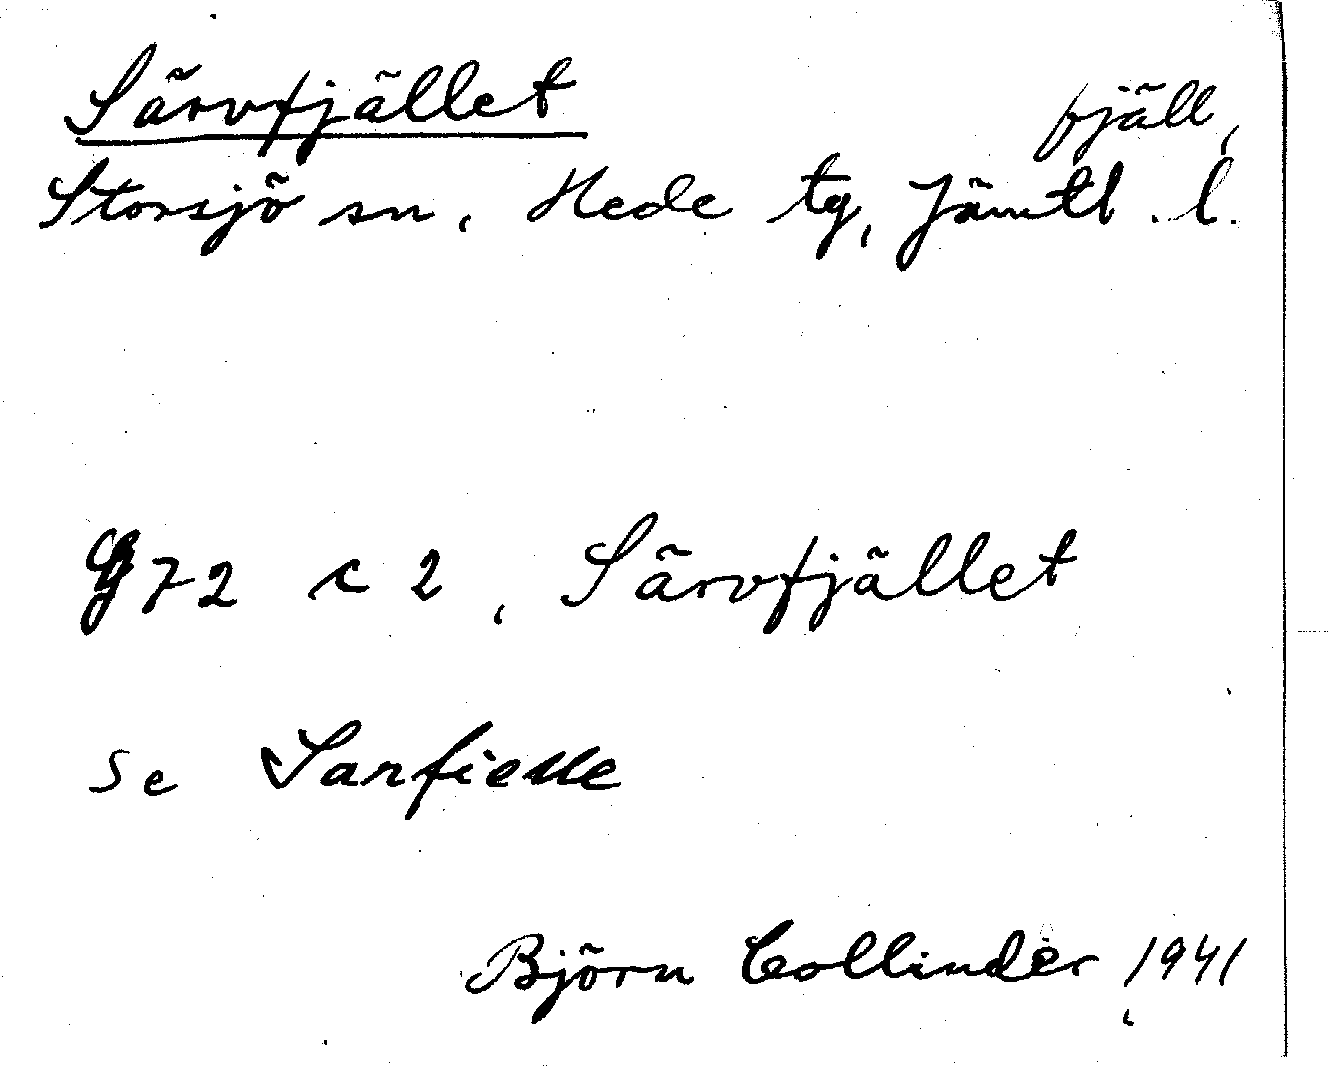 Särvfjället fjäll,
Storsjö sn, Hede tg, Jämtl. l.
G 72 c 2, Särvfjället
se Sarfielle
Björn Collinder 1941